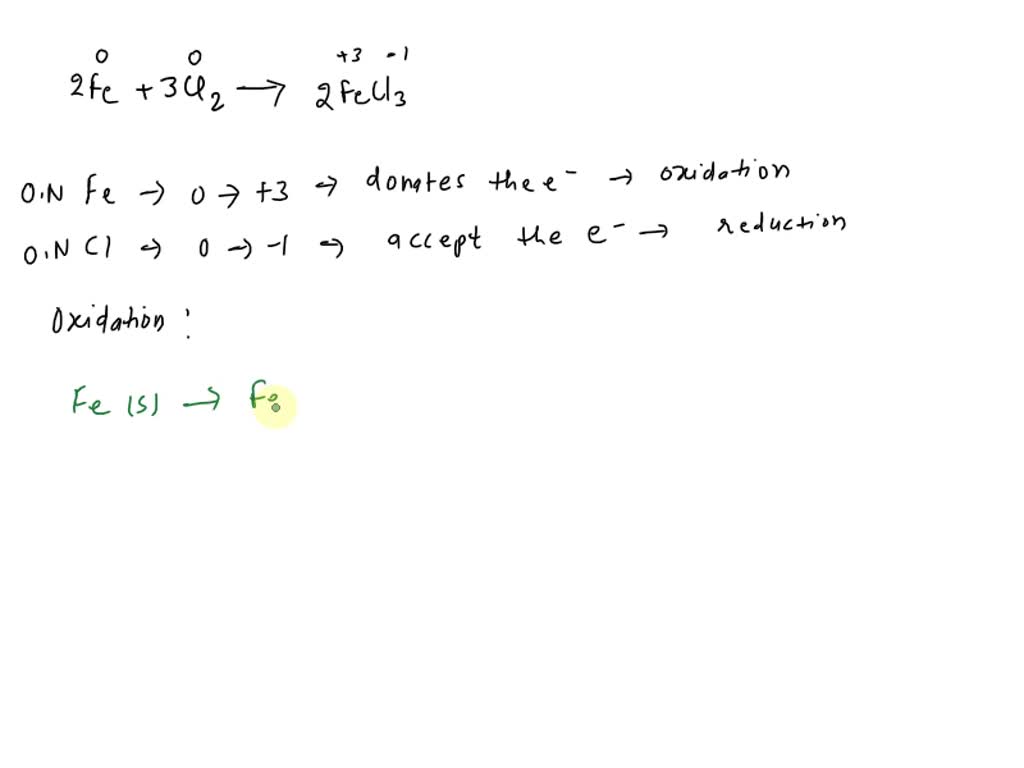 0 0 +3 -1
2Fe + 3Cl2 → 2FeCl3
O.N Fe → 0 → +3 → donates the e⁻ → oxidation
O.N Cl → 0 → -1 → accept the e⁻ → reduction
Oxidation :
Fe (s) → Fe